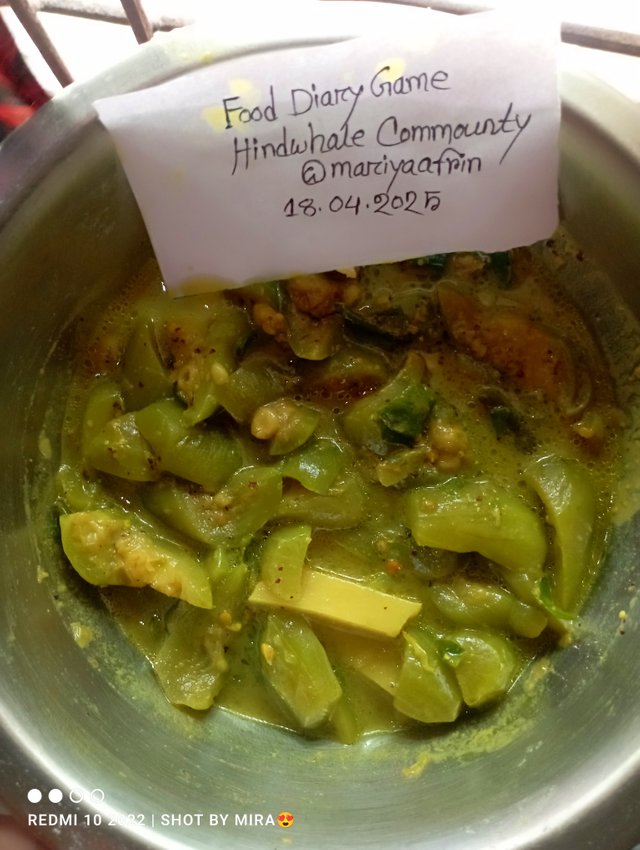 Food Diary Game
Hindwhale Commounty
@mariyaafrin
18.04.2025
REDMI 10 2022 | SHOT BY MIRA😍